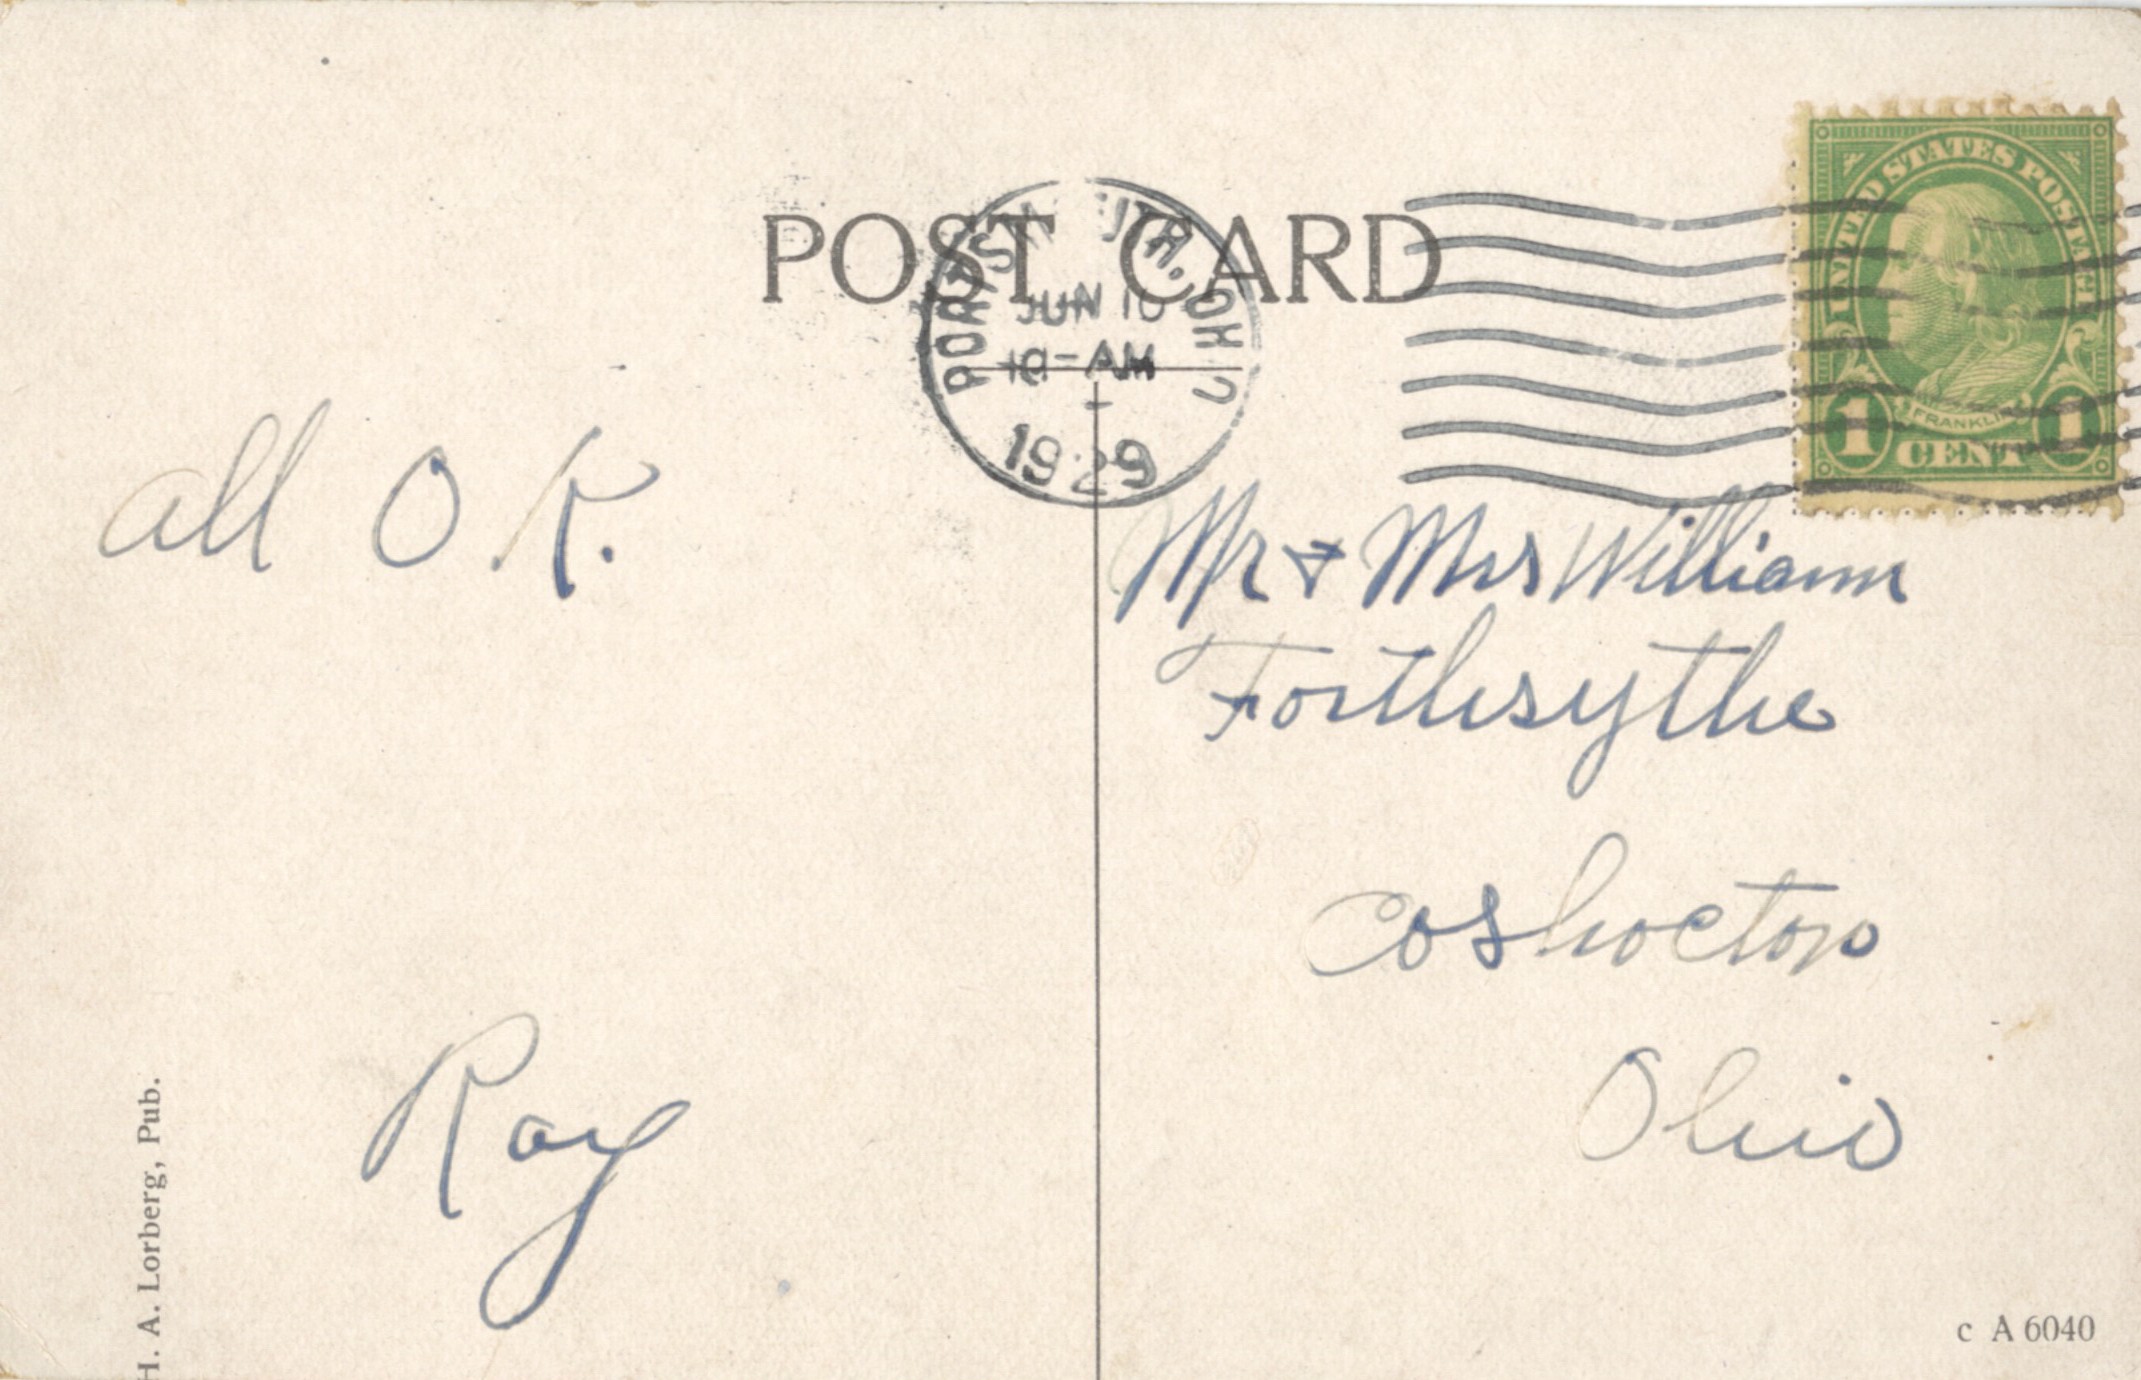 POST CARD
PORTSMOUTH, OHIO
JUN 10
10-AM
1929
UNITED STATES POSTAGE
FRANKLIN
1 CENT 1
all O.K.
Ray
Mr & Mrs William
Forthsythe
Coshocton
Ohio
H. A. Lorberg, Pub.
c A 6040